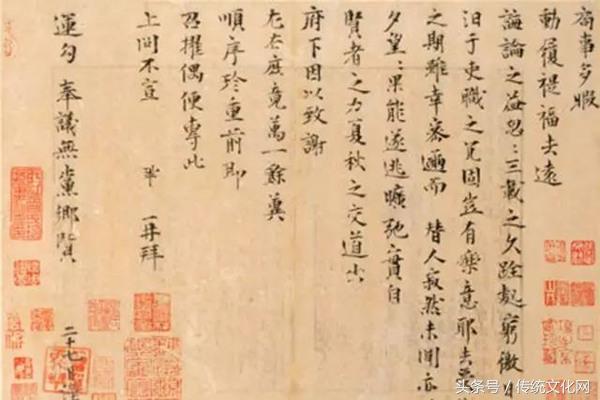 局事多暇
動履禔福去遠
誨論之益忽〻三載之久跧處窮徼
汩于吏職之冗固豈有樂意耶去
之期雖幸密邇而 替人寂然未聞亦
夕望〻果能遂逃曠弛實自
賢者之力夏秋之交道出
府下因以致謝
左右庶竟萬一餘冀
順序珍重前即
召擢偶便專此
上問不宣 鞏 再拜
運勾 奉議無黨鄉賢
二十七日謹
头条号 / 传统文化网